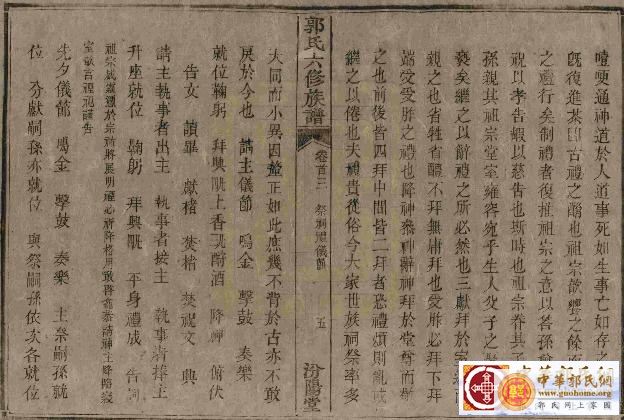 噎哽通神道於人道事死如生事亡如存之
既復進茶卽古禮之酳也祖宗歆饗之餘
之禮行矣制禮者復推祖宗之意以各孫
祝以孝告嘏以慈告也斯時也祖宗眷其子
孫親其祖宗堂室雍容宛乎生人父子之
褻矣繼之以辭禮之所必然也三獻拜於
親之也省牲省醴不拜無庸拜也受胙必下拜
端爱受胙之禮也降神參神辭神拜於堂尊而
之也前後皆四拜中間皆二拜者恐禮煩則亂
繼之以倦也夫禮貴從俗今大家世族祠祭率多
郭氏六修族譜 卷首三 祭祠禮儀節 五 汾陽堂
大同而小異因釐正如此庶幾不背於古亦不敢
戾於今也 請主儀節 鳴金 擊鼓 奏樂
就位鞠躬 拜興 上香 酹酒 降神 俯伏
告文 讀畢 獻楮 焚楮 焚祝文 興
請主執事者出主 執事者接主 執事者捧主
升座就位 鞠躬 拜興 平身禮成 告詞
祖宗
室敬言禮祝謹告
先夕儀節 鳴金 擊鼓 奏樂 主祭嗣孫就
位 分獻嗣孫亦就位 與祭嗣孫依次各就位
中華郭氏網
www.guohome.org
郭氏網上家園